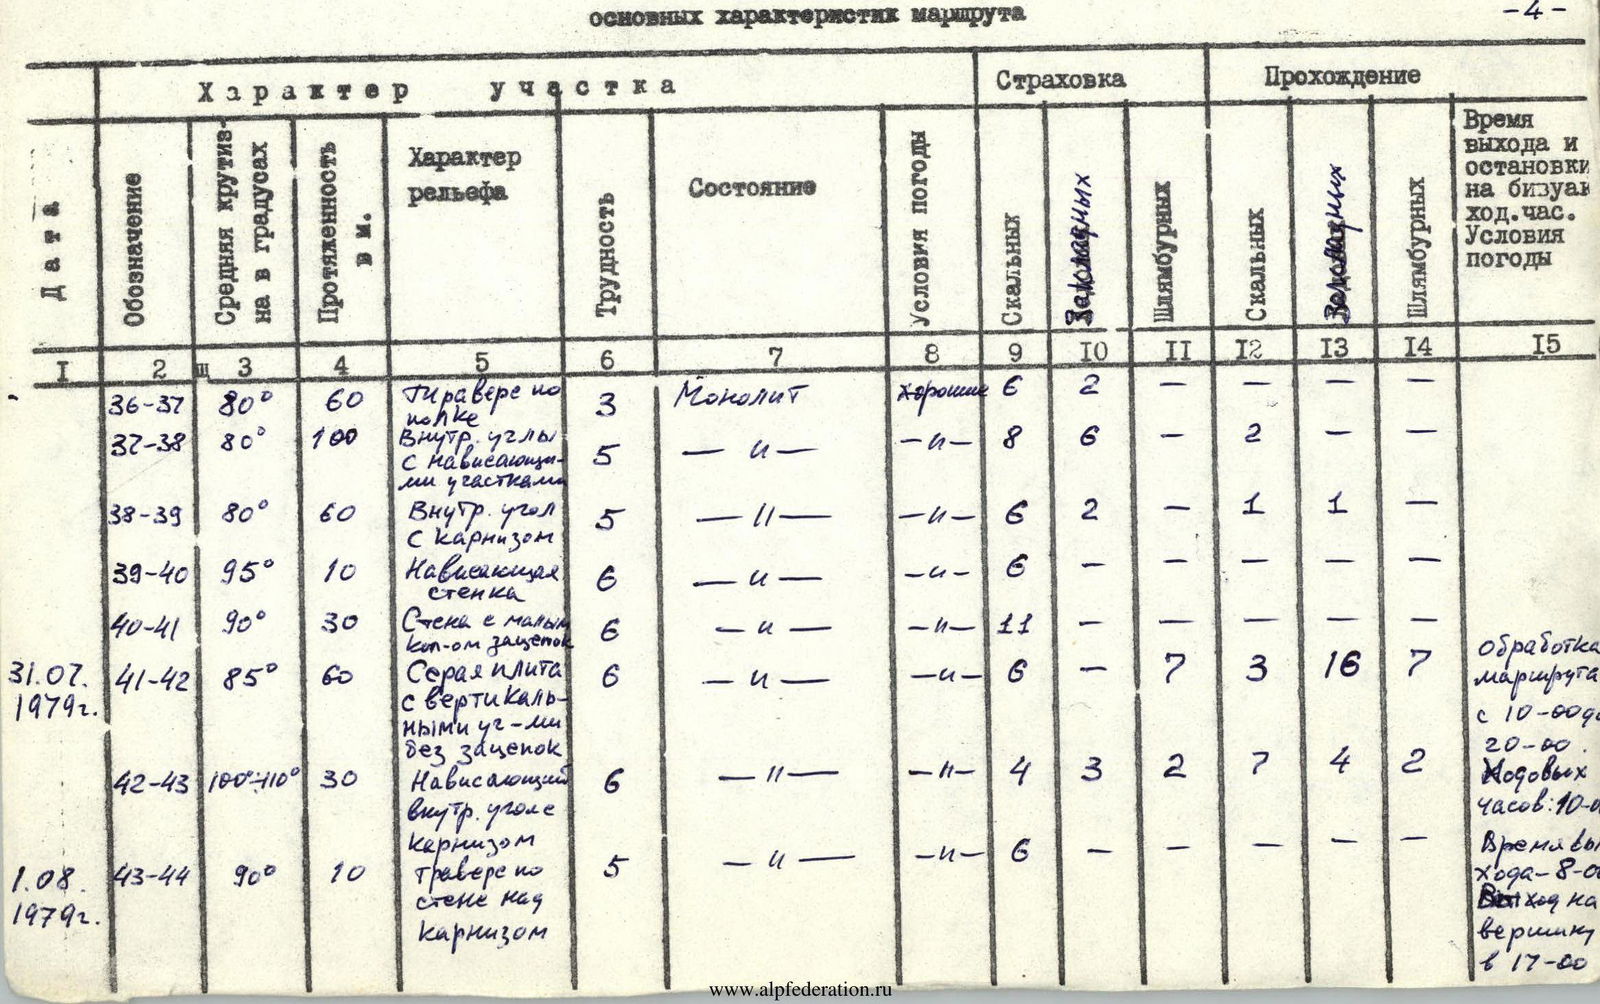 основных характеристик маршрута
-4-
Характер участка
Страховка
Прохождение
Дата
Обозначение
Средняя крутиз-
на в градусах
Протяженность
в м.
Характер
рельефа
Трудность
Состояние
Условия погоды
Скальных
Закладных
Шлямбурных
Скальных
Закладных
Шлямбурных
Время
выхода и
остановки
на бизуак
ход.час.
Условия
погоды
I 2 щ 3 4 5 6 7 8 9 I0 II I2 I3 I4 I5
36-37 80° 60 Траверс по 3 Монолит хорошие 6 2 — — — —
полке
37-38 80° 100 Внутр. углы 5 —"— —"— 8 6 — 2 — —
с нависающи-
ми участками
38-39 80° 60 Внутр. угол 5 —"— —"— 6 2 — 1 1 —
с карнизом
39-40 95° 10 Нависающая 6 —"— —"— 6 — — — — —
стенка
40-41 90° 30 Стена с малым 6 —"— —"— 11 — — — — —
кол-ом зацепок
31.07. 41-42 85° 60 Серая плита 6 —"— —"— 6 — 7 3 16 7
1979г.
с вертикаль-
ными уг-ми
без зацепок
обработка
маршрута
с 10-00 до
20-00.
Ходовых
часов: 10-0
42-43 100°÷110° 30 Нависающий 6 —"— —"— 4 3 2 7 4 2
внутр. угол с
карнизом
1.08. 43-44 90° 10 траверс по 5 —"— —"— 6 — — — — —
1979г.
стене над
карнизом
Время вы
хода-8-00
Выход на
вершину
в 17-00
www.alpfederation.ru